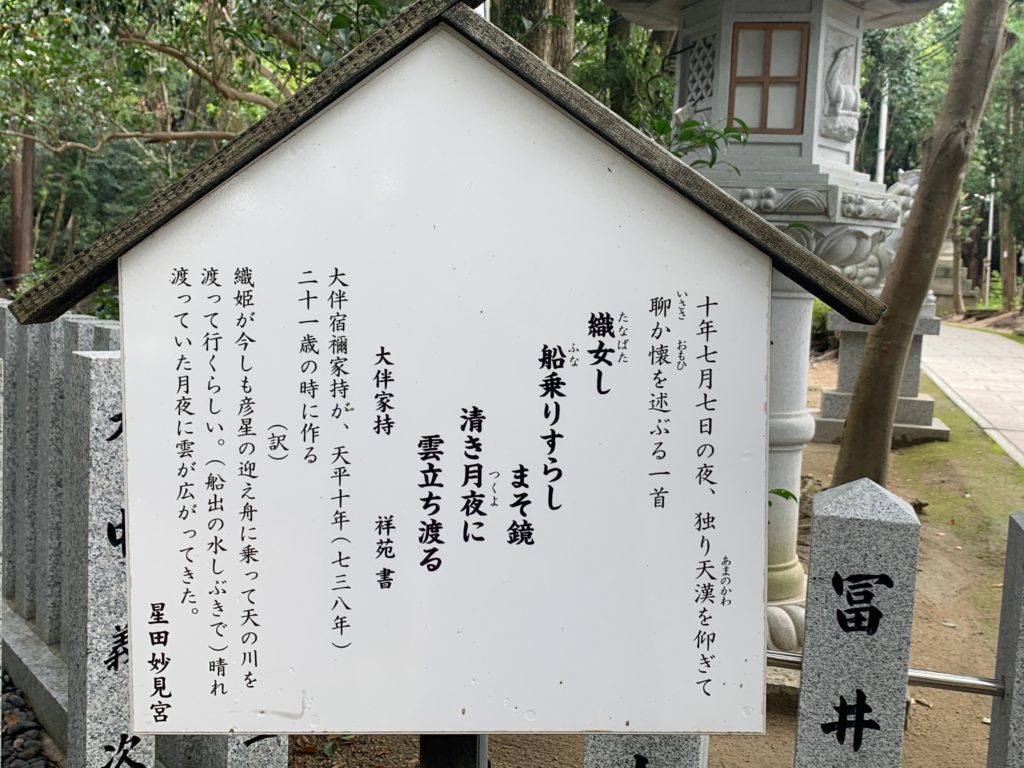 十年七月七日の夜、独り天漢を仰ぎて
あまのかわ
聊か懐を述ぶる一首
いささ
おもひ
織女し
たなばた
船乗りすらし
ふな
まそ鏡
清き月夜に
つくよ
雲立ち渡る
大伴家持 祥苑書
大伴宿禰家持が、天平十年(七三八年)
二十一歳の時に作る
(訳)
織姫が今しも彦星の迎え舟に乗って天の川を
渡って行くらしい。(船出の水しぶきで)晴れ
渡っていた月夜に雲が広がってきた。
星田妙見宮
冨井